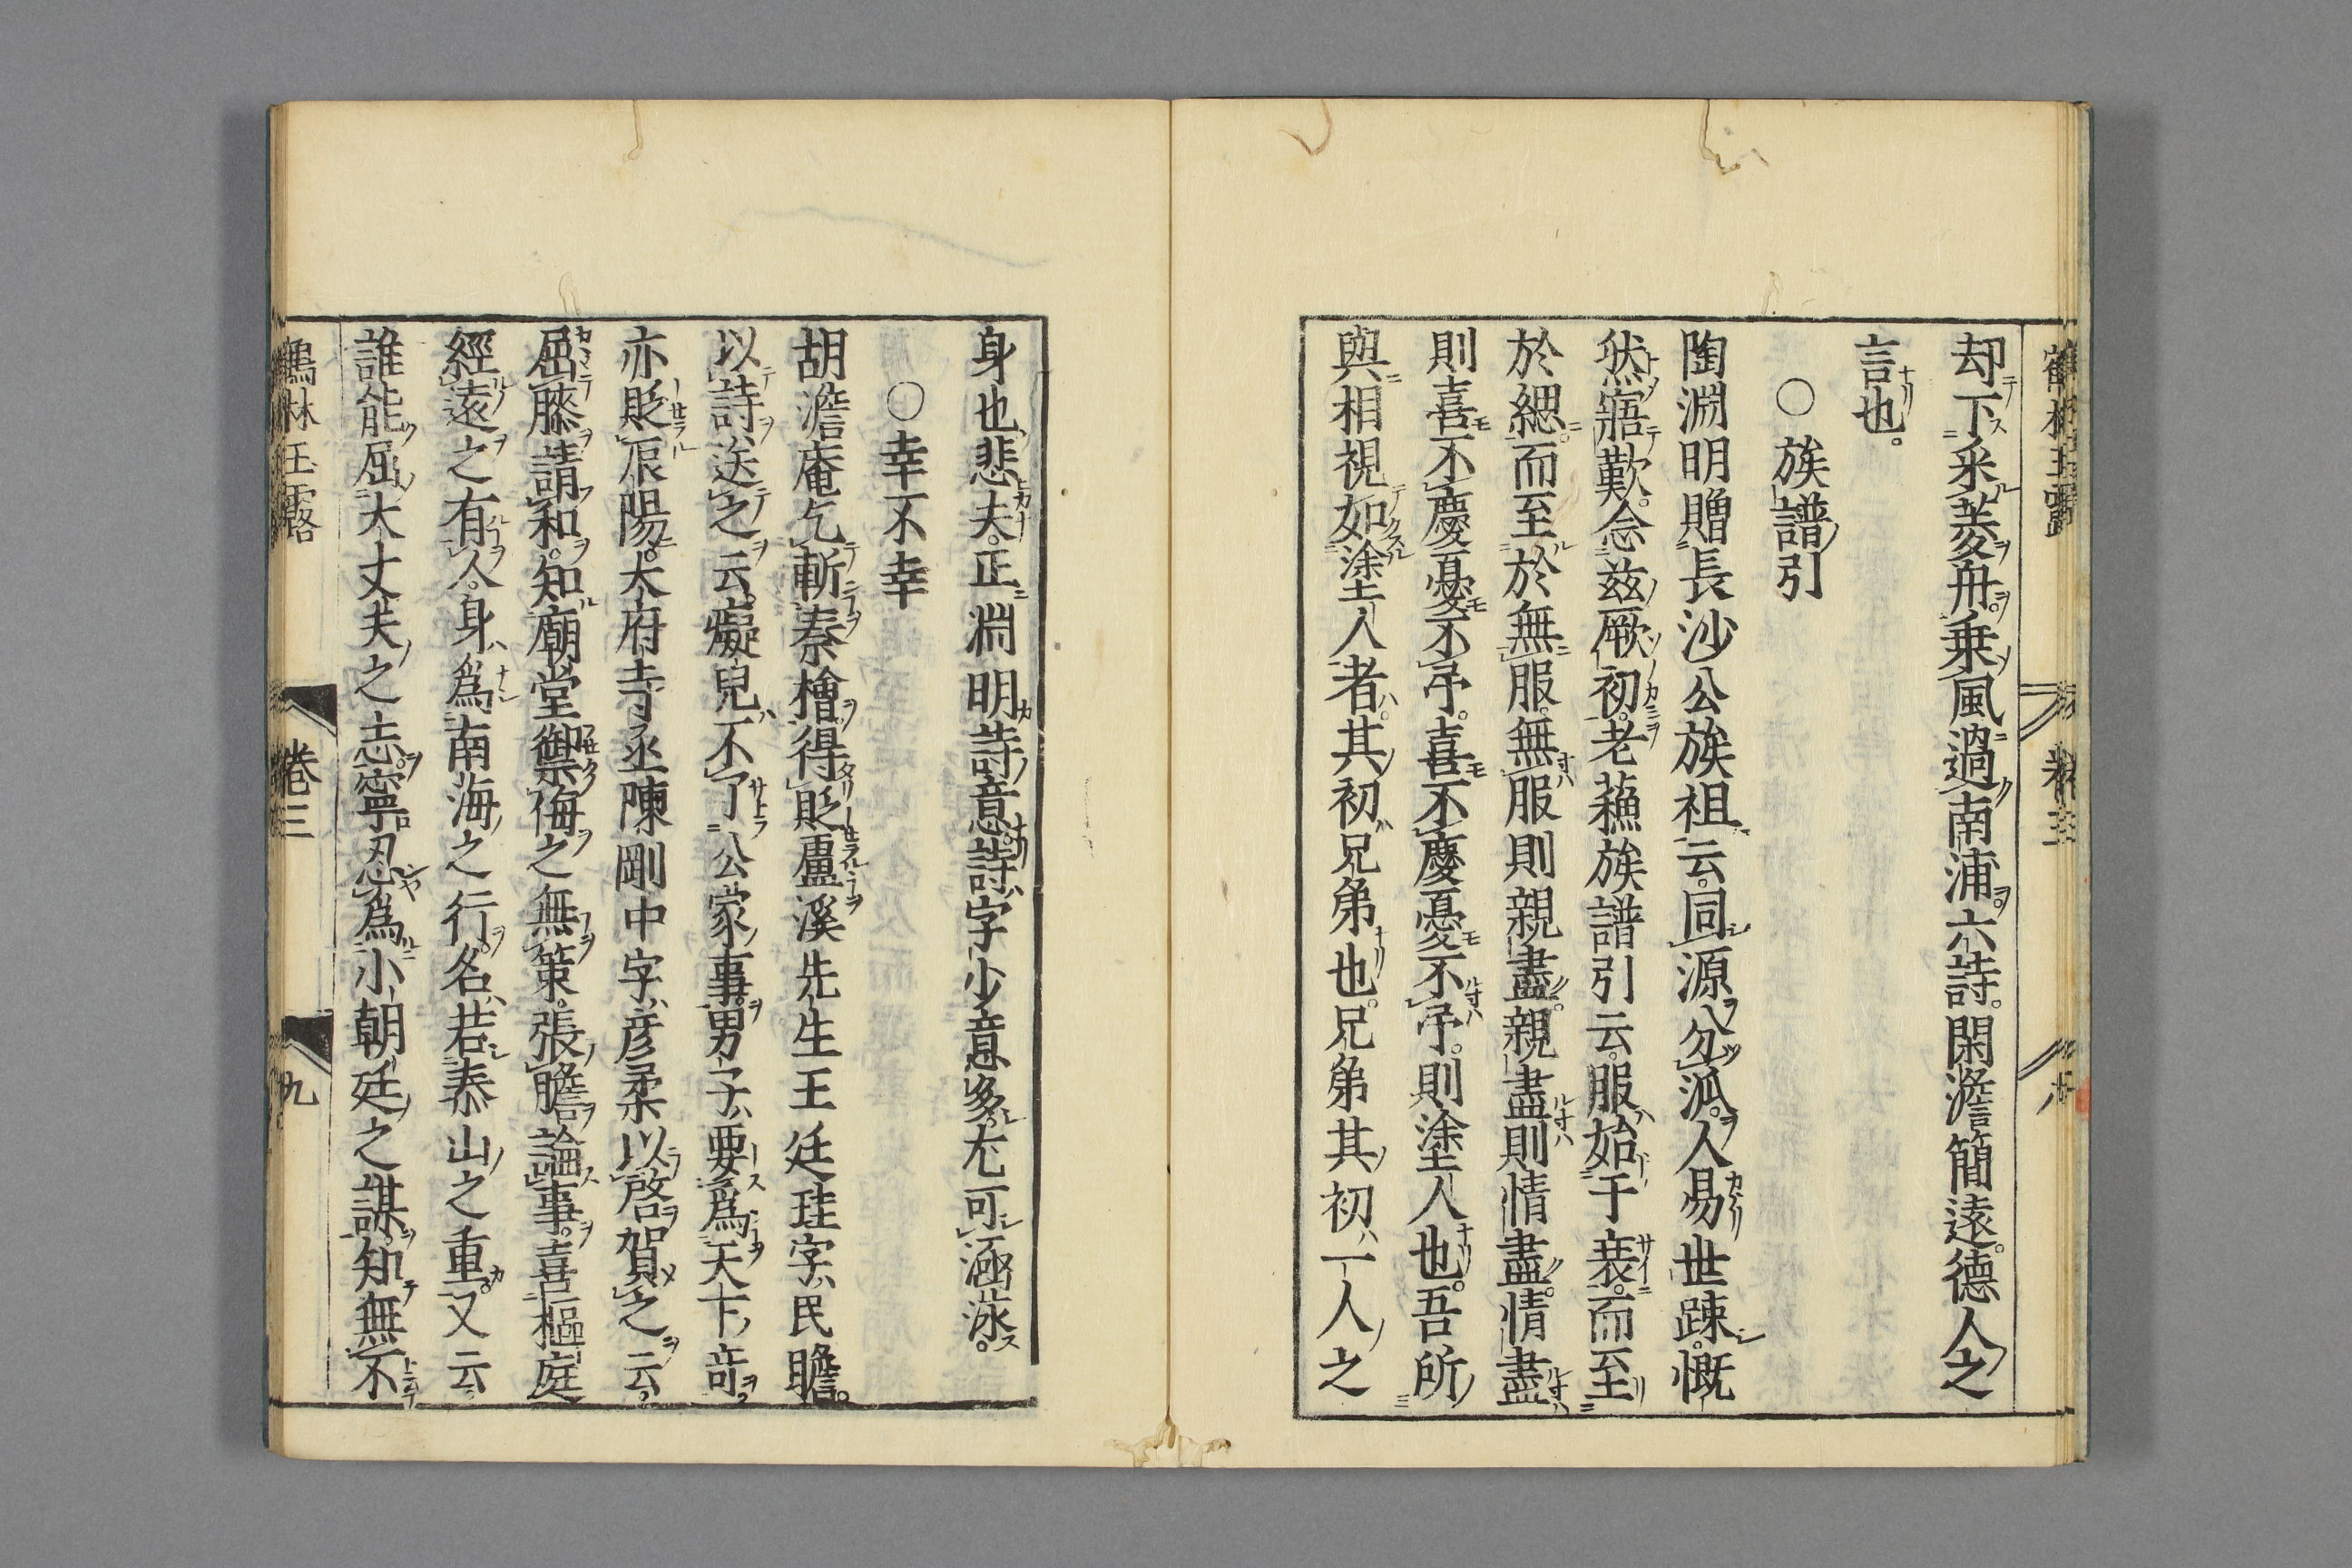 却下采菱舟乗風過南浦六詩。閑澹簡遠。德人之
言也。
○族譜引
陶淵明贈長沙公族祖云。同源分派。人易世踈。慨
然寤歎。念茲厥初。老蘓族譜引云。服始于衰。而至
於緦。而至於無服。無服則親盡。親盡則情盡。情盡
則喜不慶憂不弔。喜不慶憂不弔。則塗人也。吾所
與相視如塗人者。其初兄弟也。兄弟其初一人之
身也。悲夫。正淵明詩意。詩字少意多。尤可涵泳。
○幸不幸
胡澹庵乞斬秦檜得貶。盧溪先生王廷珪字民瞻。
以詩送之云。癡兒不了公家事。男子要爲天下奇。
亦貶辰陽。太府寺丞陳剛中字彦柔。以啓賀之云。
屈膝請和。知廟堂禦侮之無策。張膽論事。喜樞庭
經遠之有人。身爲南海之行。名若泰山之重。又云
誰能屈大丈夫之志。寧忍爲小朝廷之謀。知無不
鶴林玉露 卷三 九